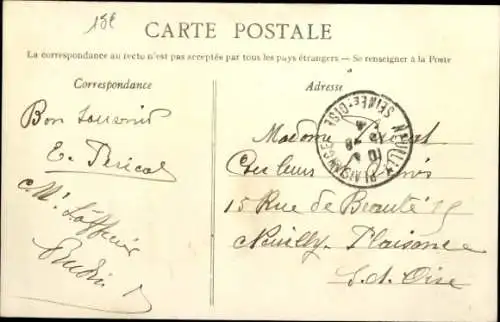 15£
CARTE POSTALE
La correspondance au recto n'est pas acceptée par tous les pays étrangers — Se renseigner à la Poste
Correspondance
Adresse
Bon souvenir
E. Péricat
NEUILLY-PLAISANCE
SEINE-ET-OISE
Madame Péricat
Couleurs
15 Rue de Beauté 15
Neuilly-Plaisance
S.et.Oise